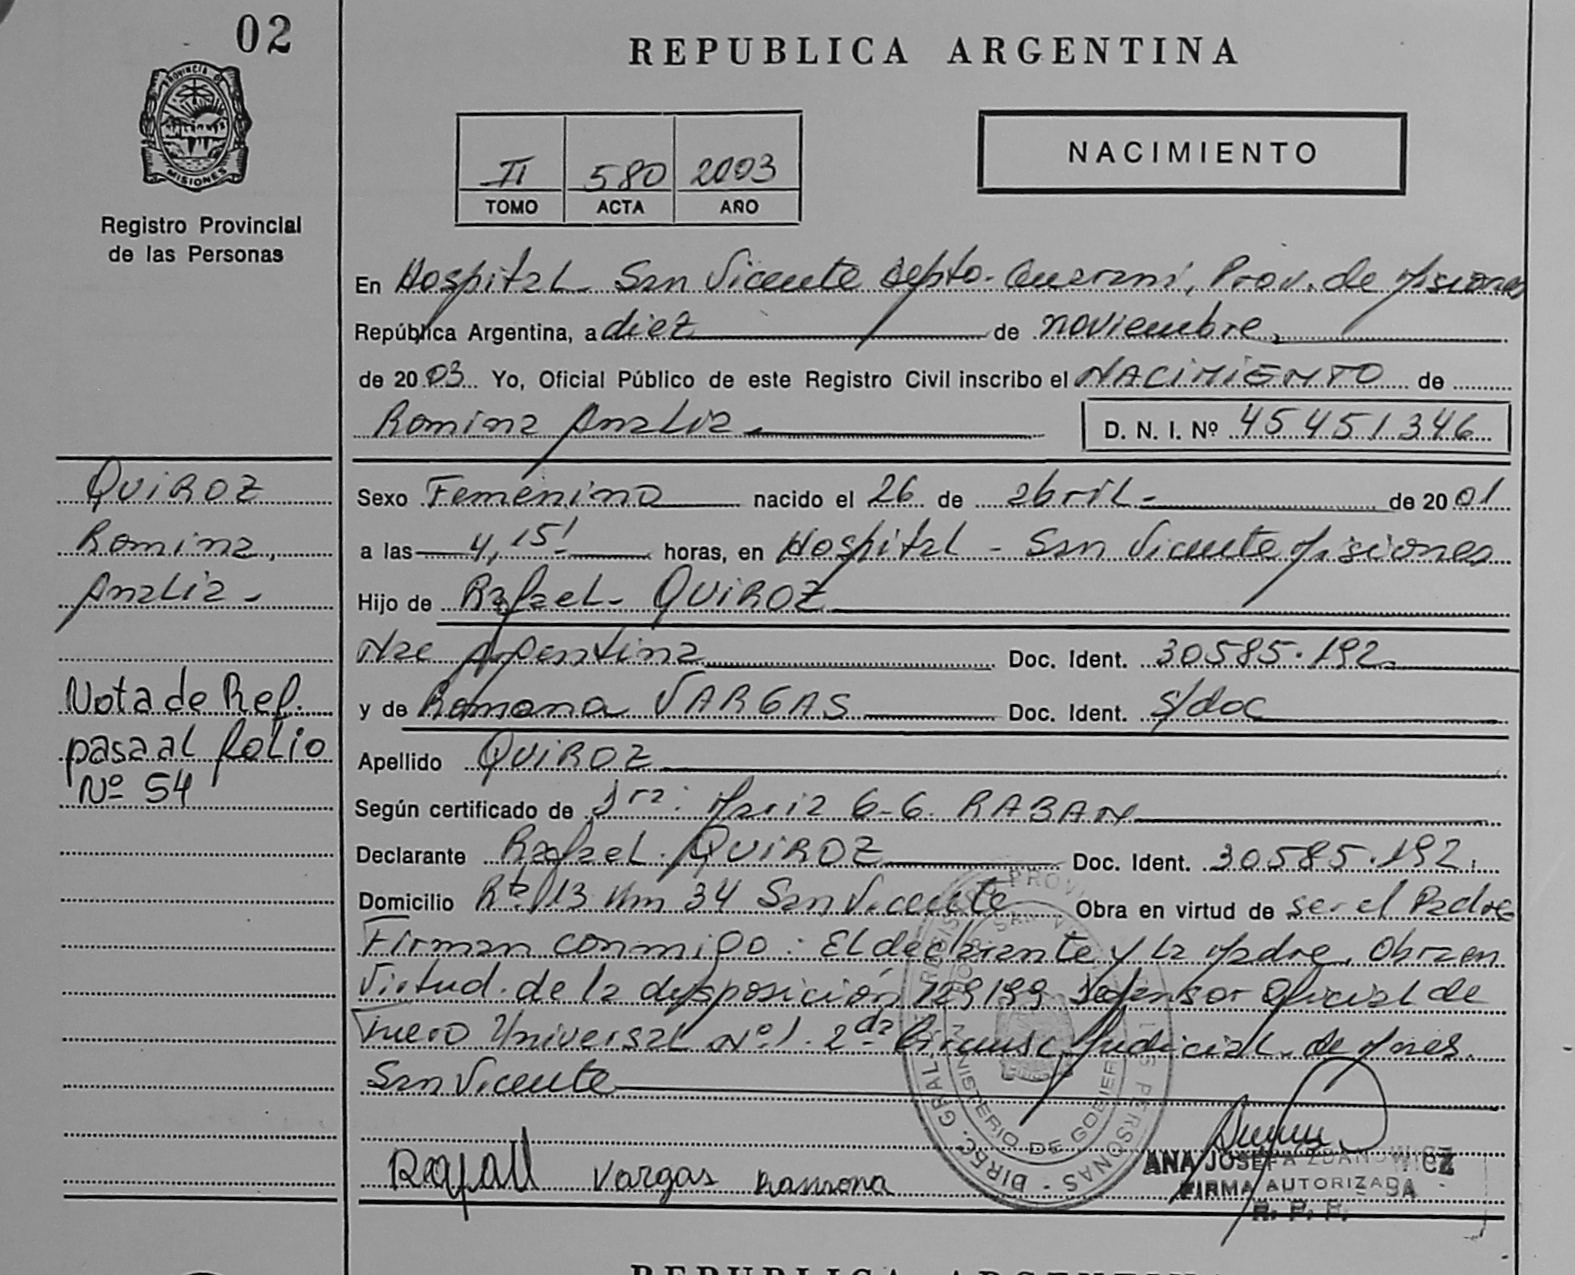 02
REPUBLICA ARGENTINA
PROVINCIA DE
MISIONES
Registro Provincial
de las Personas
II 580 2003
TOMO ACTA AÑO
NACIMIENTO
En Hospital - San Vicente Depto. Guarani, Prov. de Misiones
República Argentina, a diez de noviembre
de 2003 Yo, Oficial Público de este Registro Civil inscribo el NACIMIENTO de
Romina Analia
D. N. I. Nº 45451346
QUIROZ
Romina,
Analia -
Sexo Femenino nacido el 26 de abril - de 2001
a las 4,15' horas, en Hospital - San Vicente Misiones
Hijo de Rafael - QUIROZ
Nac Argentina Doc. Ident. 30585.192
y de Ramona VARGAS Doc. Ident. s/doc
Nota de Ref.
pasa al folio
Nº 54
Apellido QUIROZ
Según certificado de Dra: Maria G-G. RABAN
Declarante Rafael QUIROZ Doc. Ident. 30585.192
Domicilio Rta 13 Km 34 San Vicente Obra en virtud de ser el Padre
Firman conmigo: El declarante y la Madre. Obra en
virtud de la disposición 129199 Defensor Oficial de
Fuero Universal Nº 1. 2da Circunsc Judicial de Mnes.
San Vicente
Rafael Vargas Ramona
ANA JOSEFA ZDANOWICZ
FIRMA AUTORIZADA
R. P. P.
MINISTERIO DE
DIREC. GRAL.
PERSONAS
REPUBLICA ARGENTINA